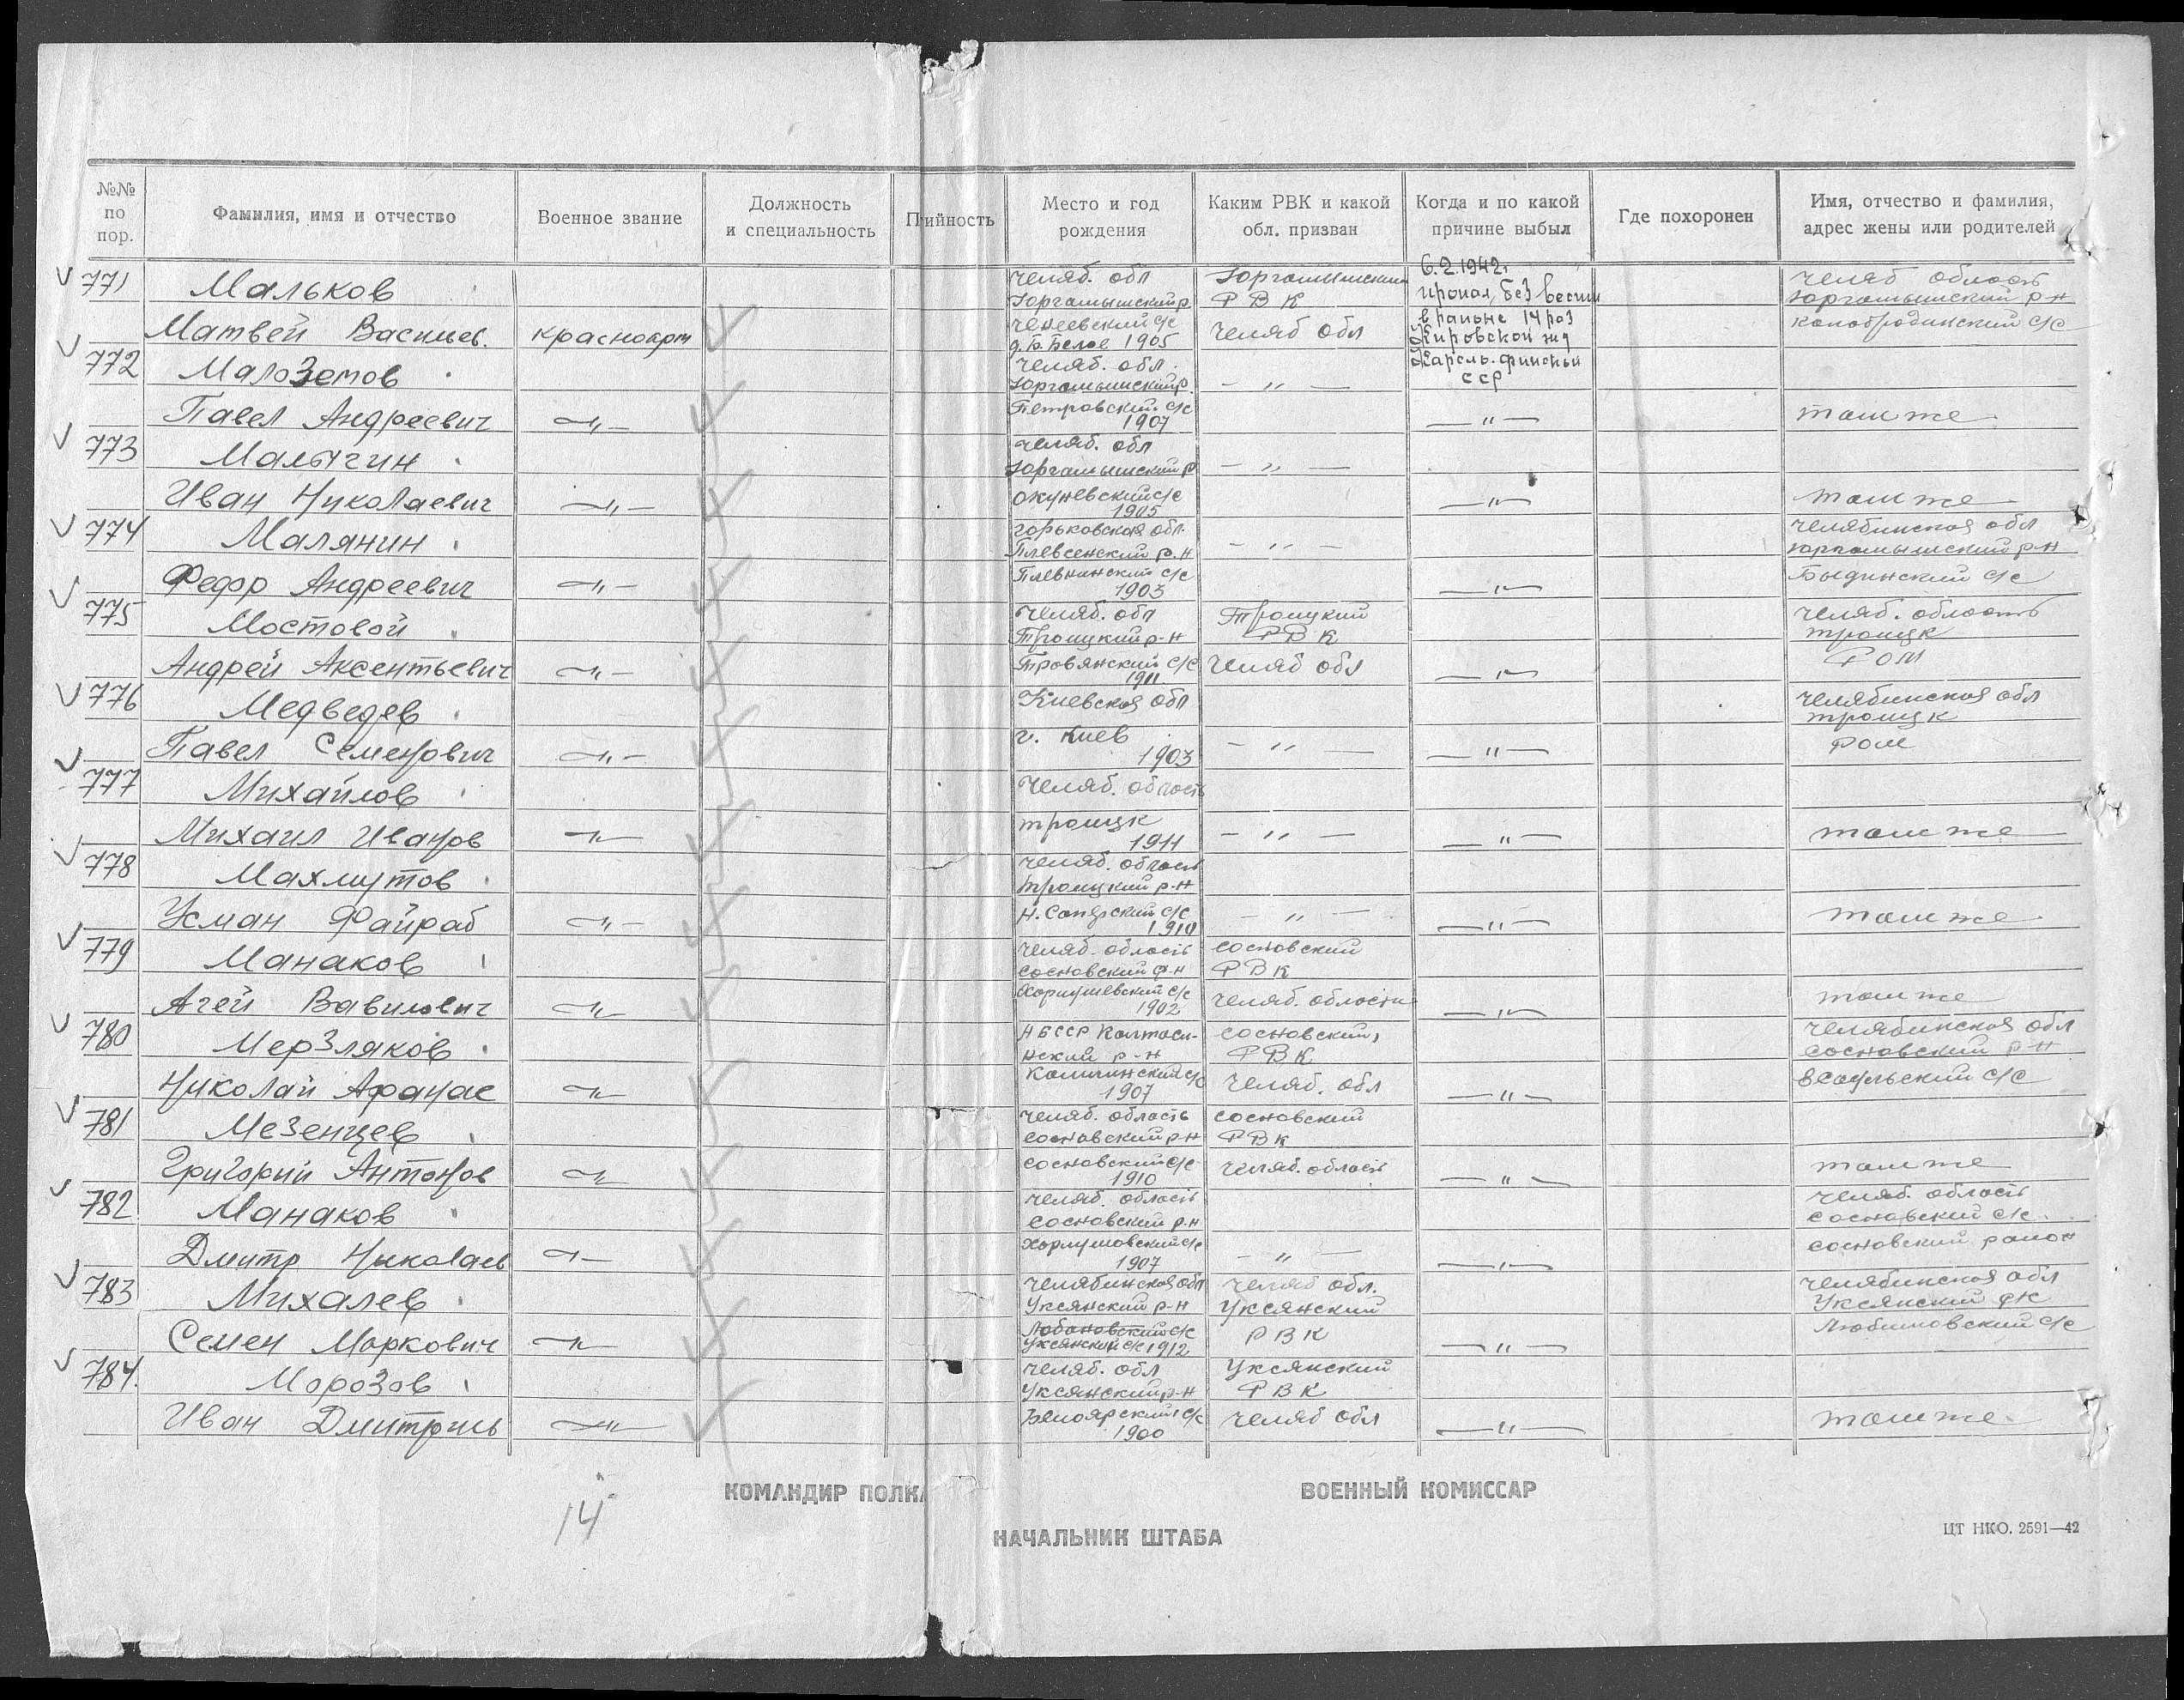 №№ по пор.
Фамилия, имя и отчество
Военное звание
Должность и специальность
Место и год рождения
Каким РВК и какой обл. призван
Когда и по какой причине выбыл
Где похоронен
Имя, отчество и фамилия, адрес жены или родителей
771 Мальков челяб. обл Юргамышский 6.2.1942г челяб область
Юргамышский р. РВК пропал без вести Юргамышский р-н
Матвей Васильев. красноарм с/с челяб обл в районе 14 раз
д. Б. Белое 1905 Кировской жд
772 Малоземов челяб. обл Карело-финской
Юргамышский р. — „ — ССР
Павел Андреевич —„— Петровский с/с —„— там же
1907
773 Малыгин челяб. обл
Юргамышский р — „ —
Иван Николаевич —„— Окуневский с/с —„— там же
1905
774 Малянин горьковская обл. челябинская обл
р-н — „ — Юргамышский р-н
Федор Андреевич —„— с/с —„— с/с
1903
775 Мостовой челяб. обл Троицкий челяб. область
Троицкий р-н РВК троицк
Андрей Аксентьевич —„— с/с челяб обл —„—
1911
776 Медведев Киевская обл челябинская обл
троицк
Павел Семенович —„— г. Киев — „ — —„—
1903
777 Михайлов челяб. область
Михаил Иванов —„— троицк — „ — —„— там же
1911
778 Махмутов челяб. область
троицкий р-н
Усман Файраб —„— с/с — „ — —„— там же
1910
779 Манаков челяб. область сосновский
сосновский р-н РВК
Агей Вавилович —„— с/с челяб. области —„— там же
1902
780 Мерзляков БССР сосновский челябинская обл
нский р-н РВК сосновский р-н
Николай Афанас —„— с/с челяб. обл —„— с/с
1907
781 Мезенцев челяб. область сосновский
сосновский р-н РВК
Григорий Антонов —„— сосновский с/с челяб. область —„— там же
1910
782 Манаков челяб. область челяб. область
сосновский р-н сосновский с/с
Дмитр Николаев —„— с/с — „ — —„— сосновский район
1907
783 Михалев челябинская обл челяб обл. челябинская обл
Уксянский р-н Уксянский Уксянский р-н
Семен Маркович —„— РВК —„— с/с
Уксянский с/с 1912
784. Морозов челяб. обл Уксянский
Уксянский р-н РВК
Иван Дмитриев —„— Белоярский с/с челяб обл —„— там же.
1900
КОМАНДИР ПОЛКА
ВОЕННЫЙ КОМИССАР
14
НАЧАЛЬНИК ШТАБА
ЦТ НКО. 2591—42